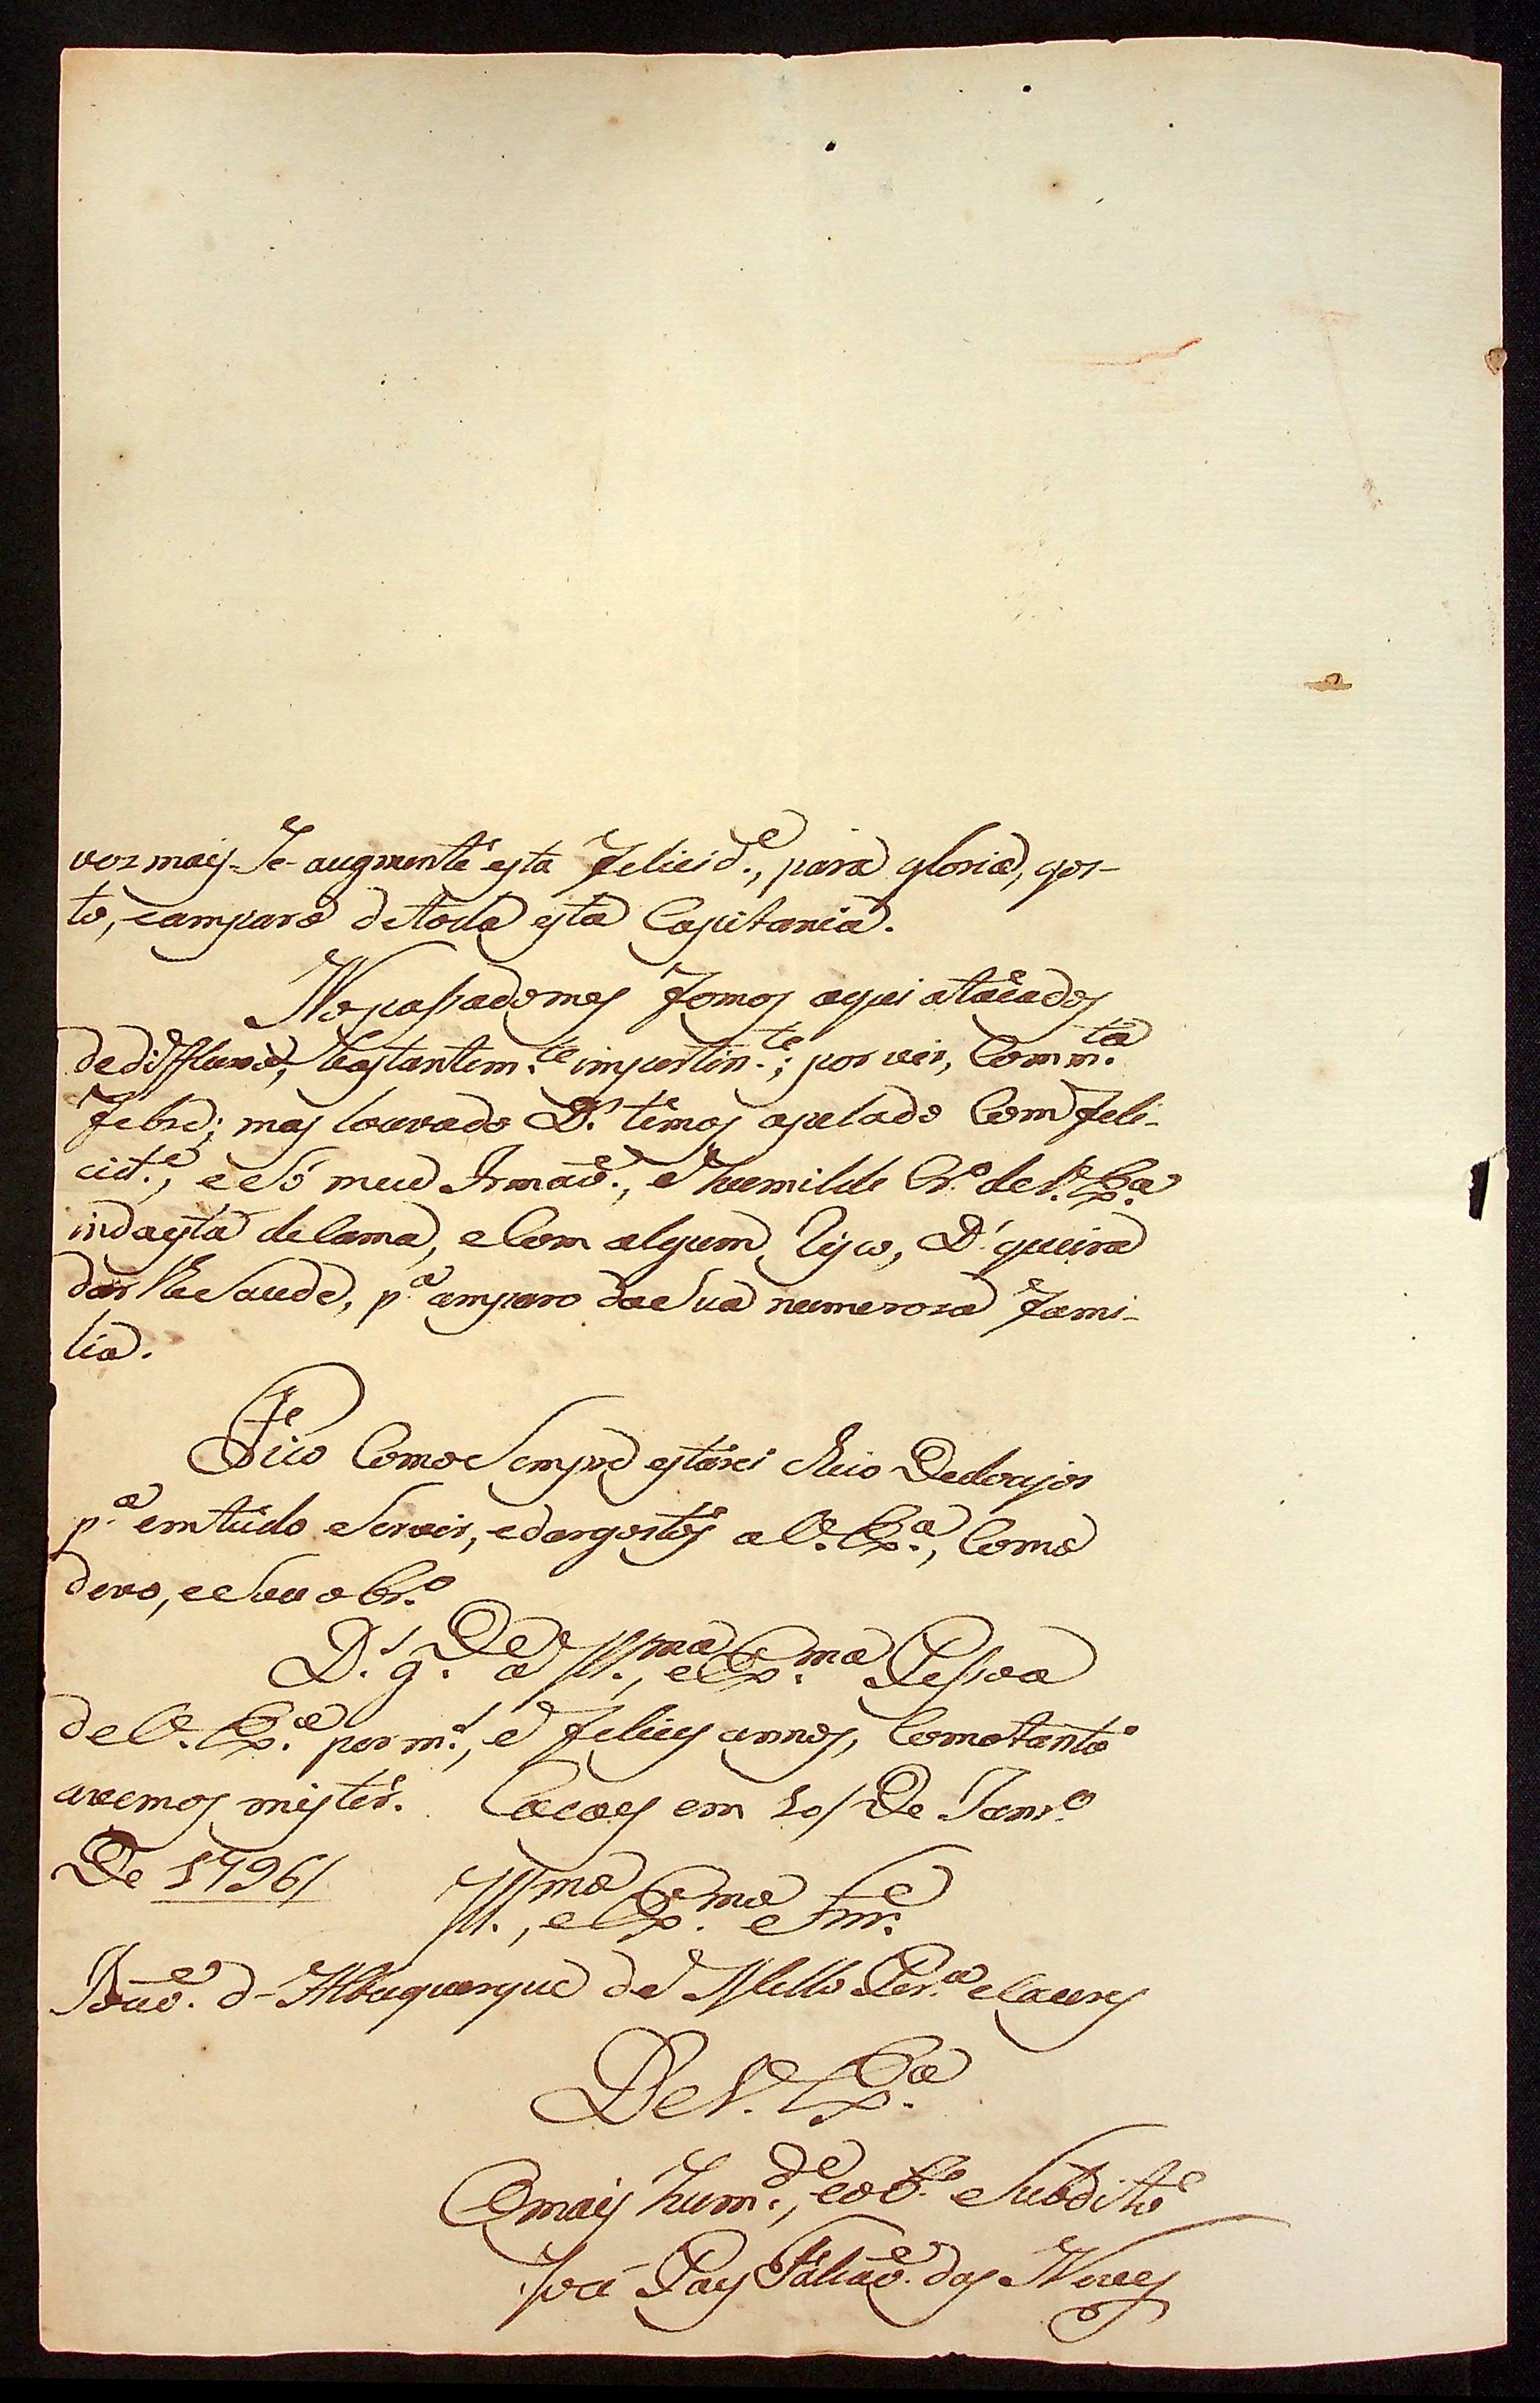 vez mais Se augmente esta Felicid.e, para gloria, gos-
to, e amparo de toda esta Capitania.
No passado mes Fomos aqui atacados
de difluxo, bastantem.te impertin.te; por vir, Com m.ta
Febre; mas louvado D.s temos apelado Com Feli-
cid.e, e Só meu Irmaõ, e humilde Cr.o de V. Ex.a
inda está de Cama, e Com algum risco, D.s queira
dar lhe Saude, p.a amparo da Sua numeroza Fami-
lia.
Fico Como Sempre estarei cheio De dezejos
p.a em tudo Servir, e dar gostos a V. Ex.a, Como
devo, e Sou obr.o
D.s g.De a Ill.ma, e Ex.ma Pessoa
de V. Ex.a por m.s, e Felices annos, Como tanto
avemos mister. Cocaes em 20/ De Janr.o
De 1796/
Ill.mo, e Ex.mo Snr.
Joaõ d'Albuquerque de Mello Per.a e Caceres
De V. Ex.a
O mais hum.de, e ob.e Subdito
José Paes Falcaõ das Neves